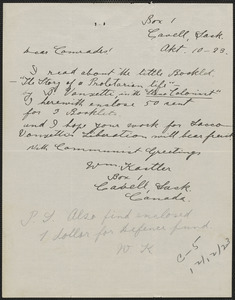 Box 1
Cavell, Sask.
Okt. 10-23.
Dear Comrades!
I read about the little Booklet
"The Story of a Proletarian life"
by B. Vanzetti in
I herewith enclose 50 cent
for 3 Booklets
and I hope your work for Sacco
Vanzettis Liberation will bear fruit
With Communist Greetings
Wm Kastler
Box 1,
Cavell, Sask.
Canada.
P.S. Also find enclosed
1 dollar for defence fund
W. K
C-5
12/12/23